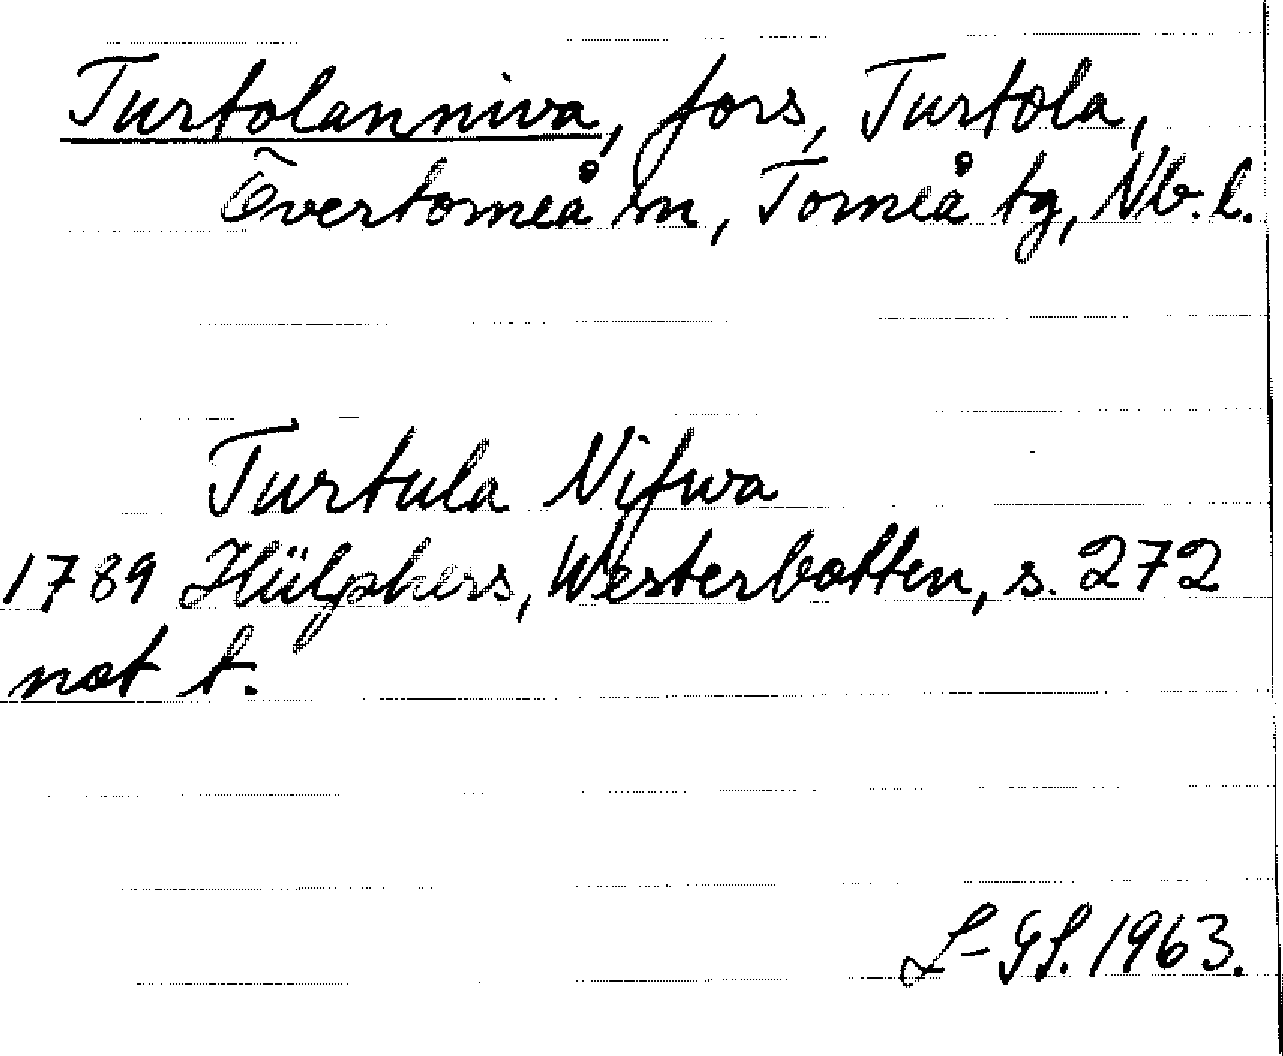 Turtolanniva, fors, Turtola,
Övertorneå sn, Torneå tg, Nb. l.
Turtula Nifwa
1789 Hülphers, Westerbotten, s. 272
not t.
L-GS. 1963.